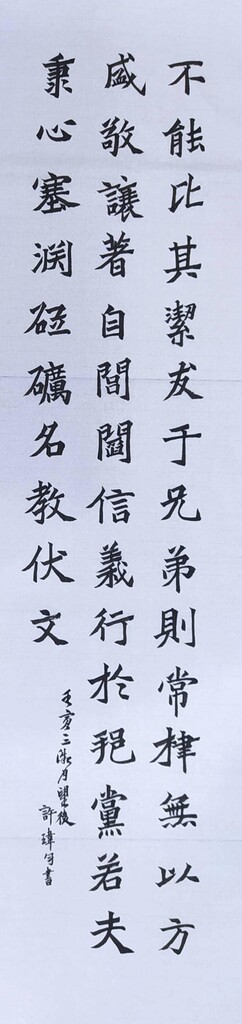 不能比其潔友于兄弟則常棣無以方
盛敬讓著自閭閻信義行於黨若夫
秉心塞渊砥礪名教伏文
亥三月望後
許瑋書